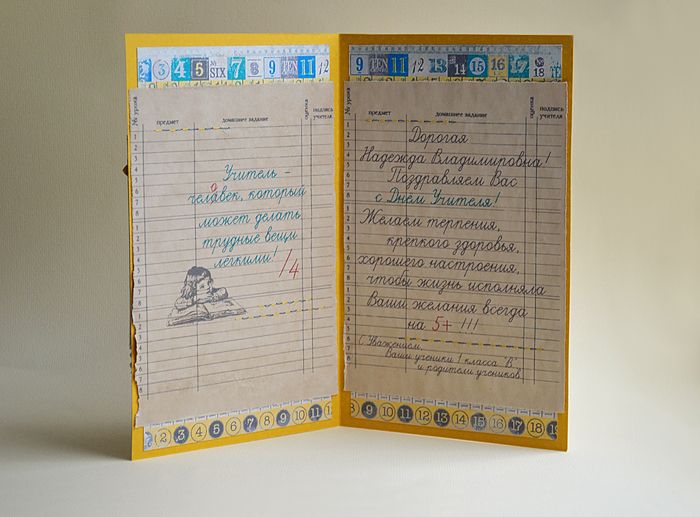 2 3 4 5 № SIX 7 8 9 TEN 11 12
№ урока предмет домашнее задание оценка подпись учителя
Учитель –
о
челавек, который
может делать
трудные вещи
лёгкими!
/4
2 3 4 5 6 7 8 9 10 11
9 TEN 11 12 13 № 14 15 16 17 № 18
№ урока предмет домашнее задание оценка подпись учителя
Дорогая
Надежда Владимировна!
Поздравляем Вас
с Днём Учителя!
Желаем терпения,
крепкого здоровья,
хорошего настроения,
чтобы жизнь исполняла
Ваши желания всегда
на 5+ !!!
С Уважением,
Ваши ученики 1 класса "В"
и родители учеников.
8 9 10 11 12 13 14 15 16 17 18